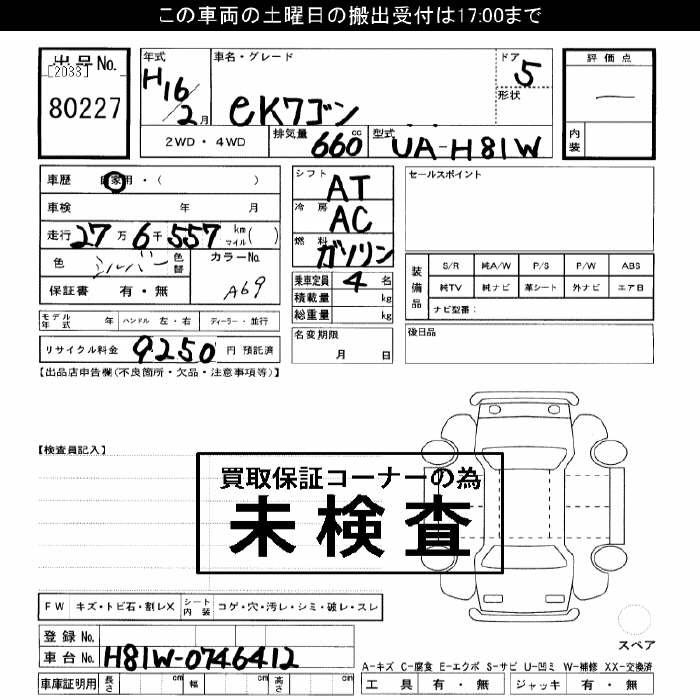 この車両の土曜日の搬出受付は17:00まで
出品No. [2033] 80227
年式 H16/2月
車名・グレード eKワゴン
ドア 5
形状
評価点 —
内装
2WD・4WD
排気量 660 cc
型式 UA-H81W
車歴 自家用・( )
車検 年 月
走行 27万6千557 km マイル( )
色 シルバー 色替
カラーNo. A69
保証書 有・無
シフト AT
冷房 AC
燃料 ガソリン
乗車定員 4 名
積載量 kg
総重量 kg
セールスポイント
装備品
S/R 純A/W P/S P/W ABS
純TV 純ナビ 革シート 外ナビ エアB
ナビ型番:
モデル年式 年 ハンドル 左・右 ディーラー・並行
リサイクル料金 9250 円 預託済
名変期限 月 日
後日品
【出品店申告欄(不良箇所・欠品・注意事項等)】
【検査員記入】
買取保証コーナーの為
未検査
FW キズ・トビ石・割レX シート内装 コゲ・穴・汚レ・シミ・破レ・スレ
登録No.
車台No. H81W-0746412
スペア
A-キズ C-腐食 E-エクボ S-サビ U-凹ミ W-補修 XX-交換済
車庫証明用 長さ cm 幅 cm 高さ cm
工具 有・無 ジャッキ 有・無